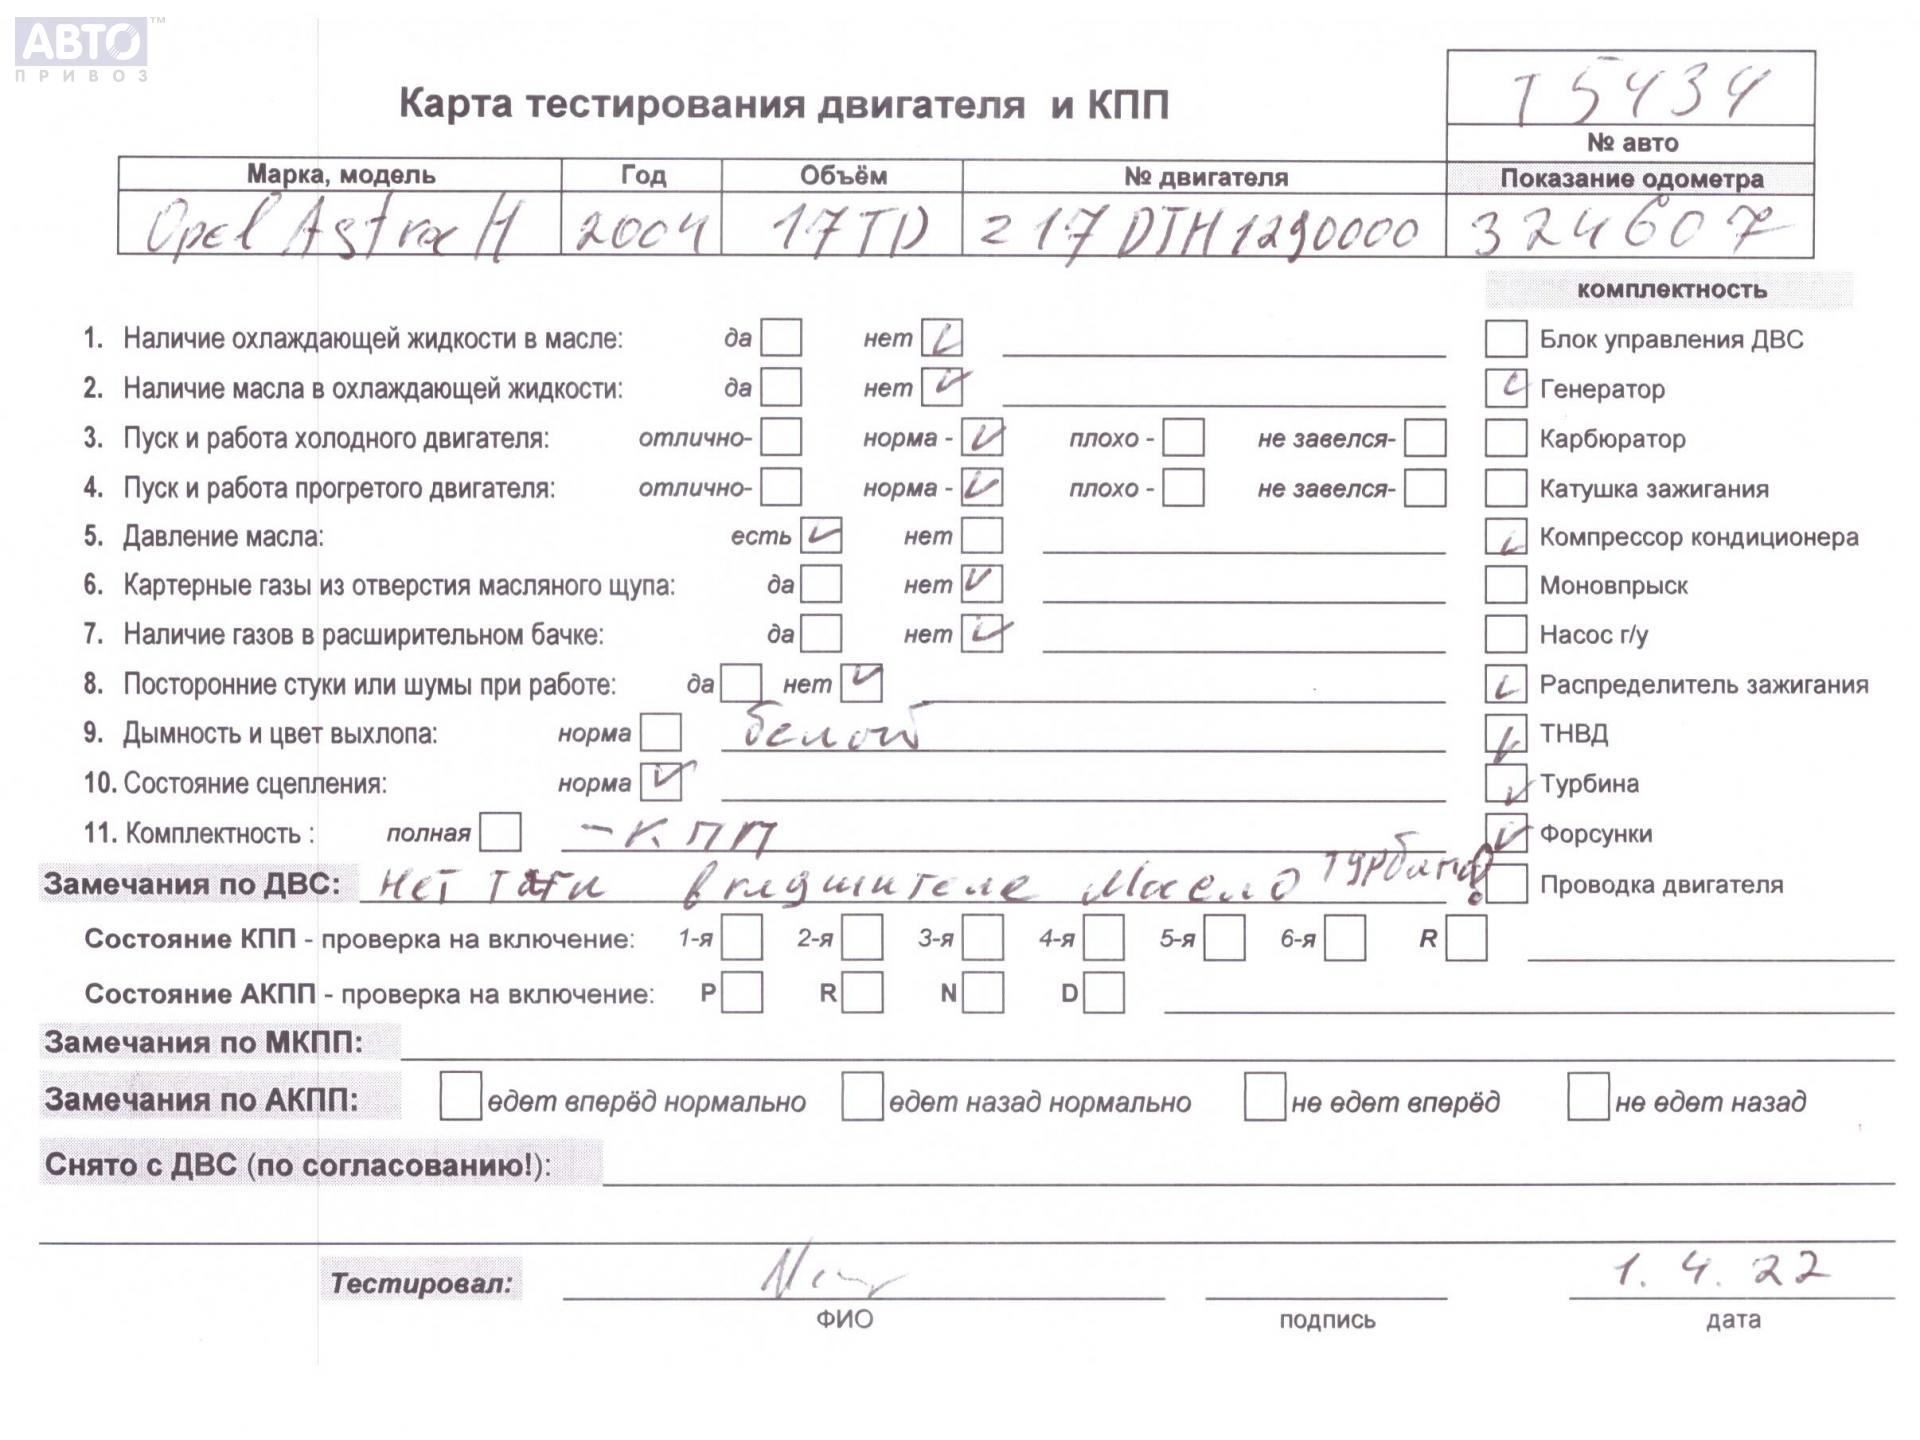 АВТО™
ПРИВОЗ
Т5434
Карта тестирования двигателя и КПП
№ авто
Марка, модель Год Объём № двигателя Показание одометра
Opel Astra H 2004 17TD z17DTH1290000 324607
комплектность
1. Наличие охлаждающей жидкости в масле: да нет Блок управления ДВС
2. Наличие масла в охлаждающей жидкости: да нет Генератор
3. Пуск и работа холодного двигателя: отлично- норма - плохо - не завелся- Карбюратор
4. Пуск и работа прогретого двигателя: отлично- норма - плохо - не завелся- Катушка зажигания
5. Давление масла: есть нет Компрессор кондиционера
6. Картерные газы из отверстия масляного щупа: да нет Моновпрыск
7. Наличие газов в расширительном бачке: да нет Насос г/у
8. Посторонние стуки или шумы при работе: да нет Распределитель зажигания
9. Дымность и цвет выхлопа: норма белый ТНВД
10. Состояние сцепления: норма Турбина
11. Комплектность : полная - КПП Форсунки
Замечания по ДВС: Нет тяги в глушителе Масло турбина? Проводка двигателя
Состояние КПП - проверка на включение: 1-я 2-я 3-я 4-я 5-я 6-я R
Состояние АКПП - проверка на включение: P R N D
Замечания по МКПП:
Замечания по АКПП: едет вперёд нормально едет назад нормально не едет вперёд не едет назад
Снято с ДВС (по согласованию!):
Тестировал: 1.4.22
ФИО подпись дата